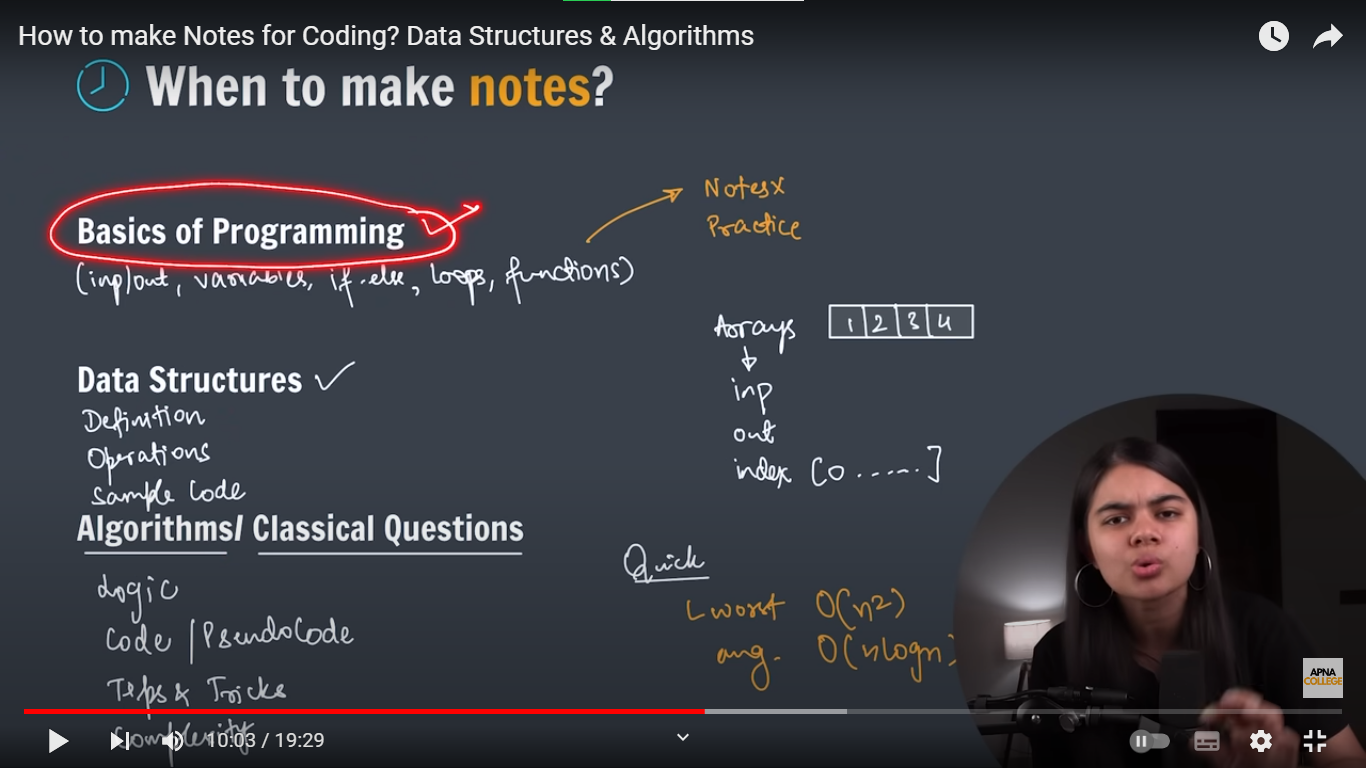 How to make Notes for Coding? Data Structures & Algorithms
When to make notes?
Notes x
Practice
Basics of Programming
(inp/out, variables, if-else, loops, functions)
Arrays 1 2 3 4
inp
out
index [0 ......]
Data Structures
Definition
Operations
Sample Code
Algorithms/ Classical Questions
Logic
Code / PseudoCode
Tips & Tricks
Complexity
Quick
worst O(n2)
avg. O(nlogn)
APNA
COLLEGE
10:03 / 19:29